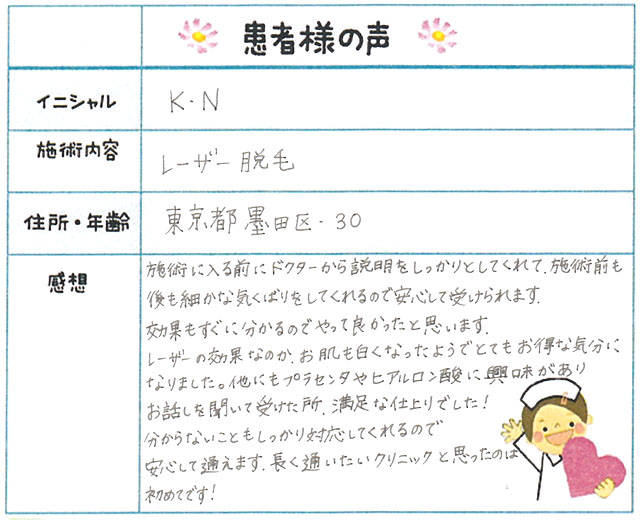 患者様の声
イニシャル K・N
施術内容 レーザー脱毛
住所・年齢 東京都墨田区・30
感想
施術に入る前にドクターから説明をしっかりとしてくれて、施術前も
後も細かな気くばりをしてくれるので安心して受けられます.
効果もすぐに分かるのでやって良かったと思います.
レーザーの効果なのか、お肌も白くなったようでとてもお得な気分に
なりました。他にもプラセンタやヒアルロン酸に興味があり
お話しを聞いて受けた所、満足な仕上りでした!
分からないこともしっかり対応してくれるので
安心して通えます.長く通いたいクリニックと思ったのは
初めてです!